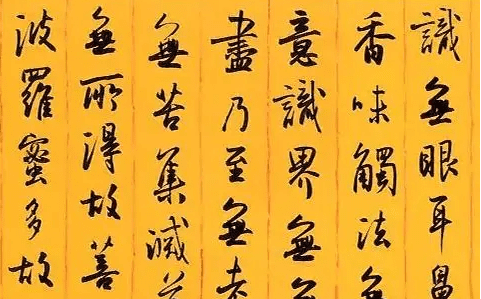 識無眼耳鼻
香味觸法無
意識界無無
盡乃至無老
無苦集滅
無所得故菩
波羅蜜多故